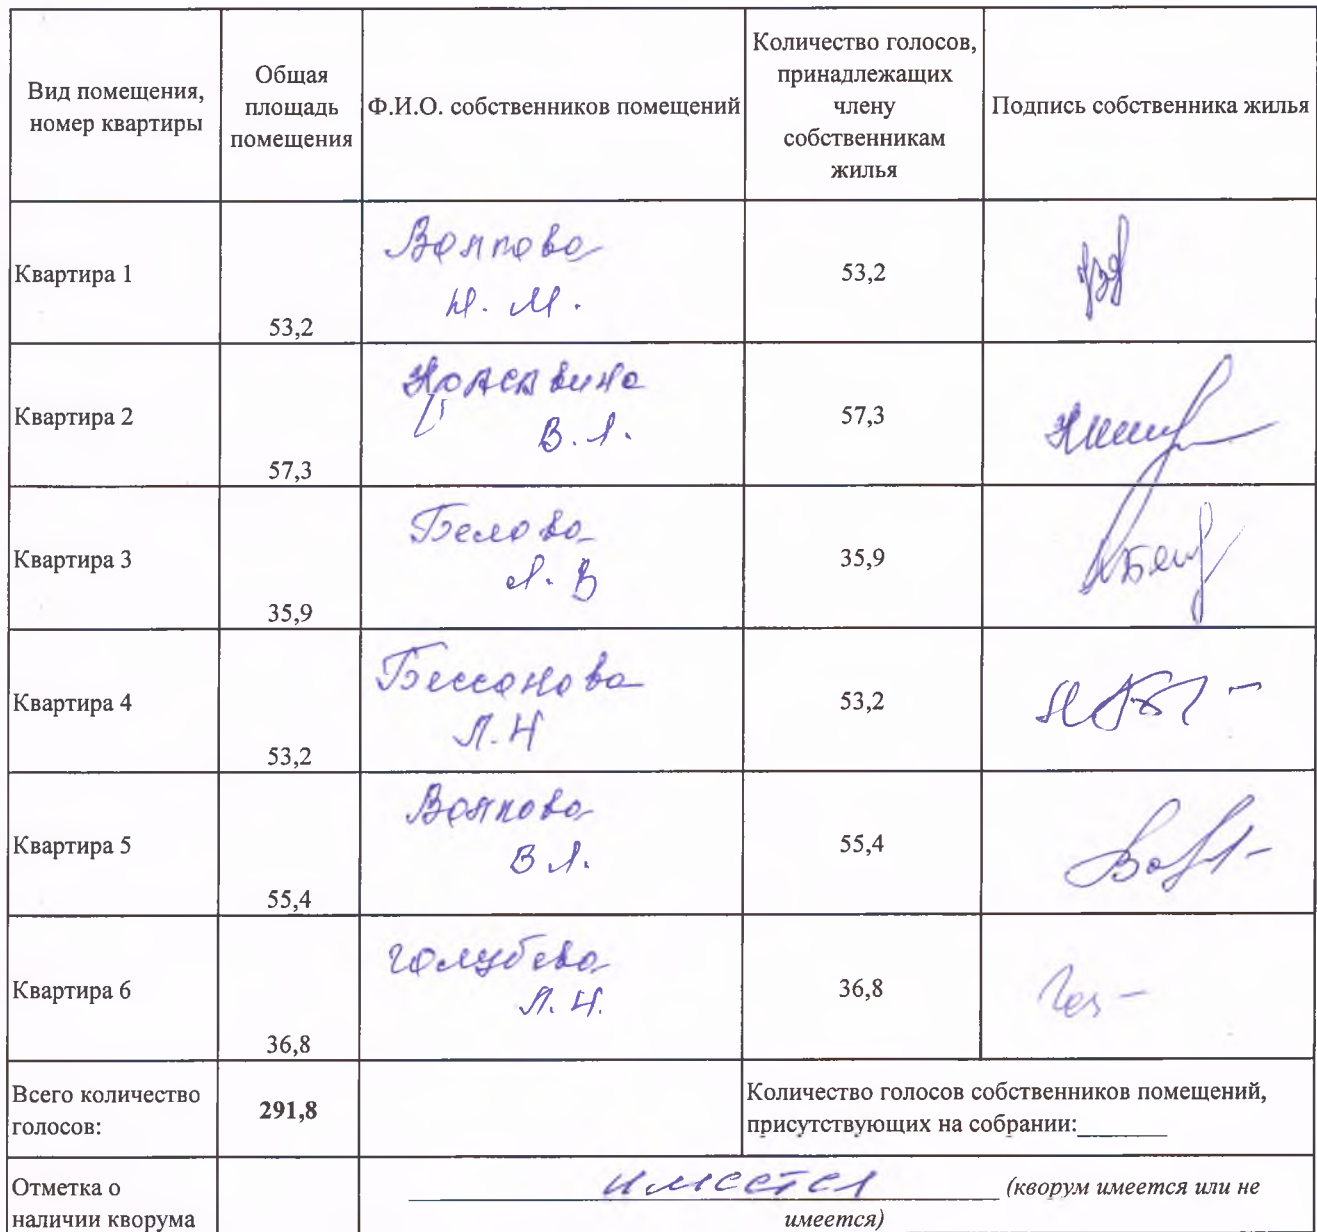 Вид помещения, номер квартиры
Общая площадь помещения
Ф.И.О. собственников помещений
Количество голосов, принадлежащих члену собственникам жилья
Подпись собственника жилья
Квартира 1
53,2
Волкова
Н. М.
53,2
Квартира 2
57,3
Красавина
В. А.
57,3
Квартира 3
35,9
Белова
А. В
35,9
Квартира 4
53,2
Бессонова
Л. Н
53,2
Квартира 5
55,4
Волкова
В А.
55,4
Квартира 6
36,8
Голубева
Л. Н.
36,8
Всего количество голосов:
291,8
Количество голосов собственников помещений,
присутствующих на собрании:
Отметка о наличии кворума
имеется (кворум имеется или не
имеется)